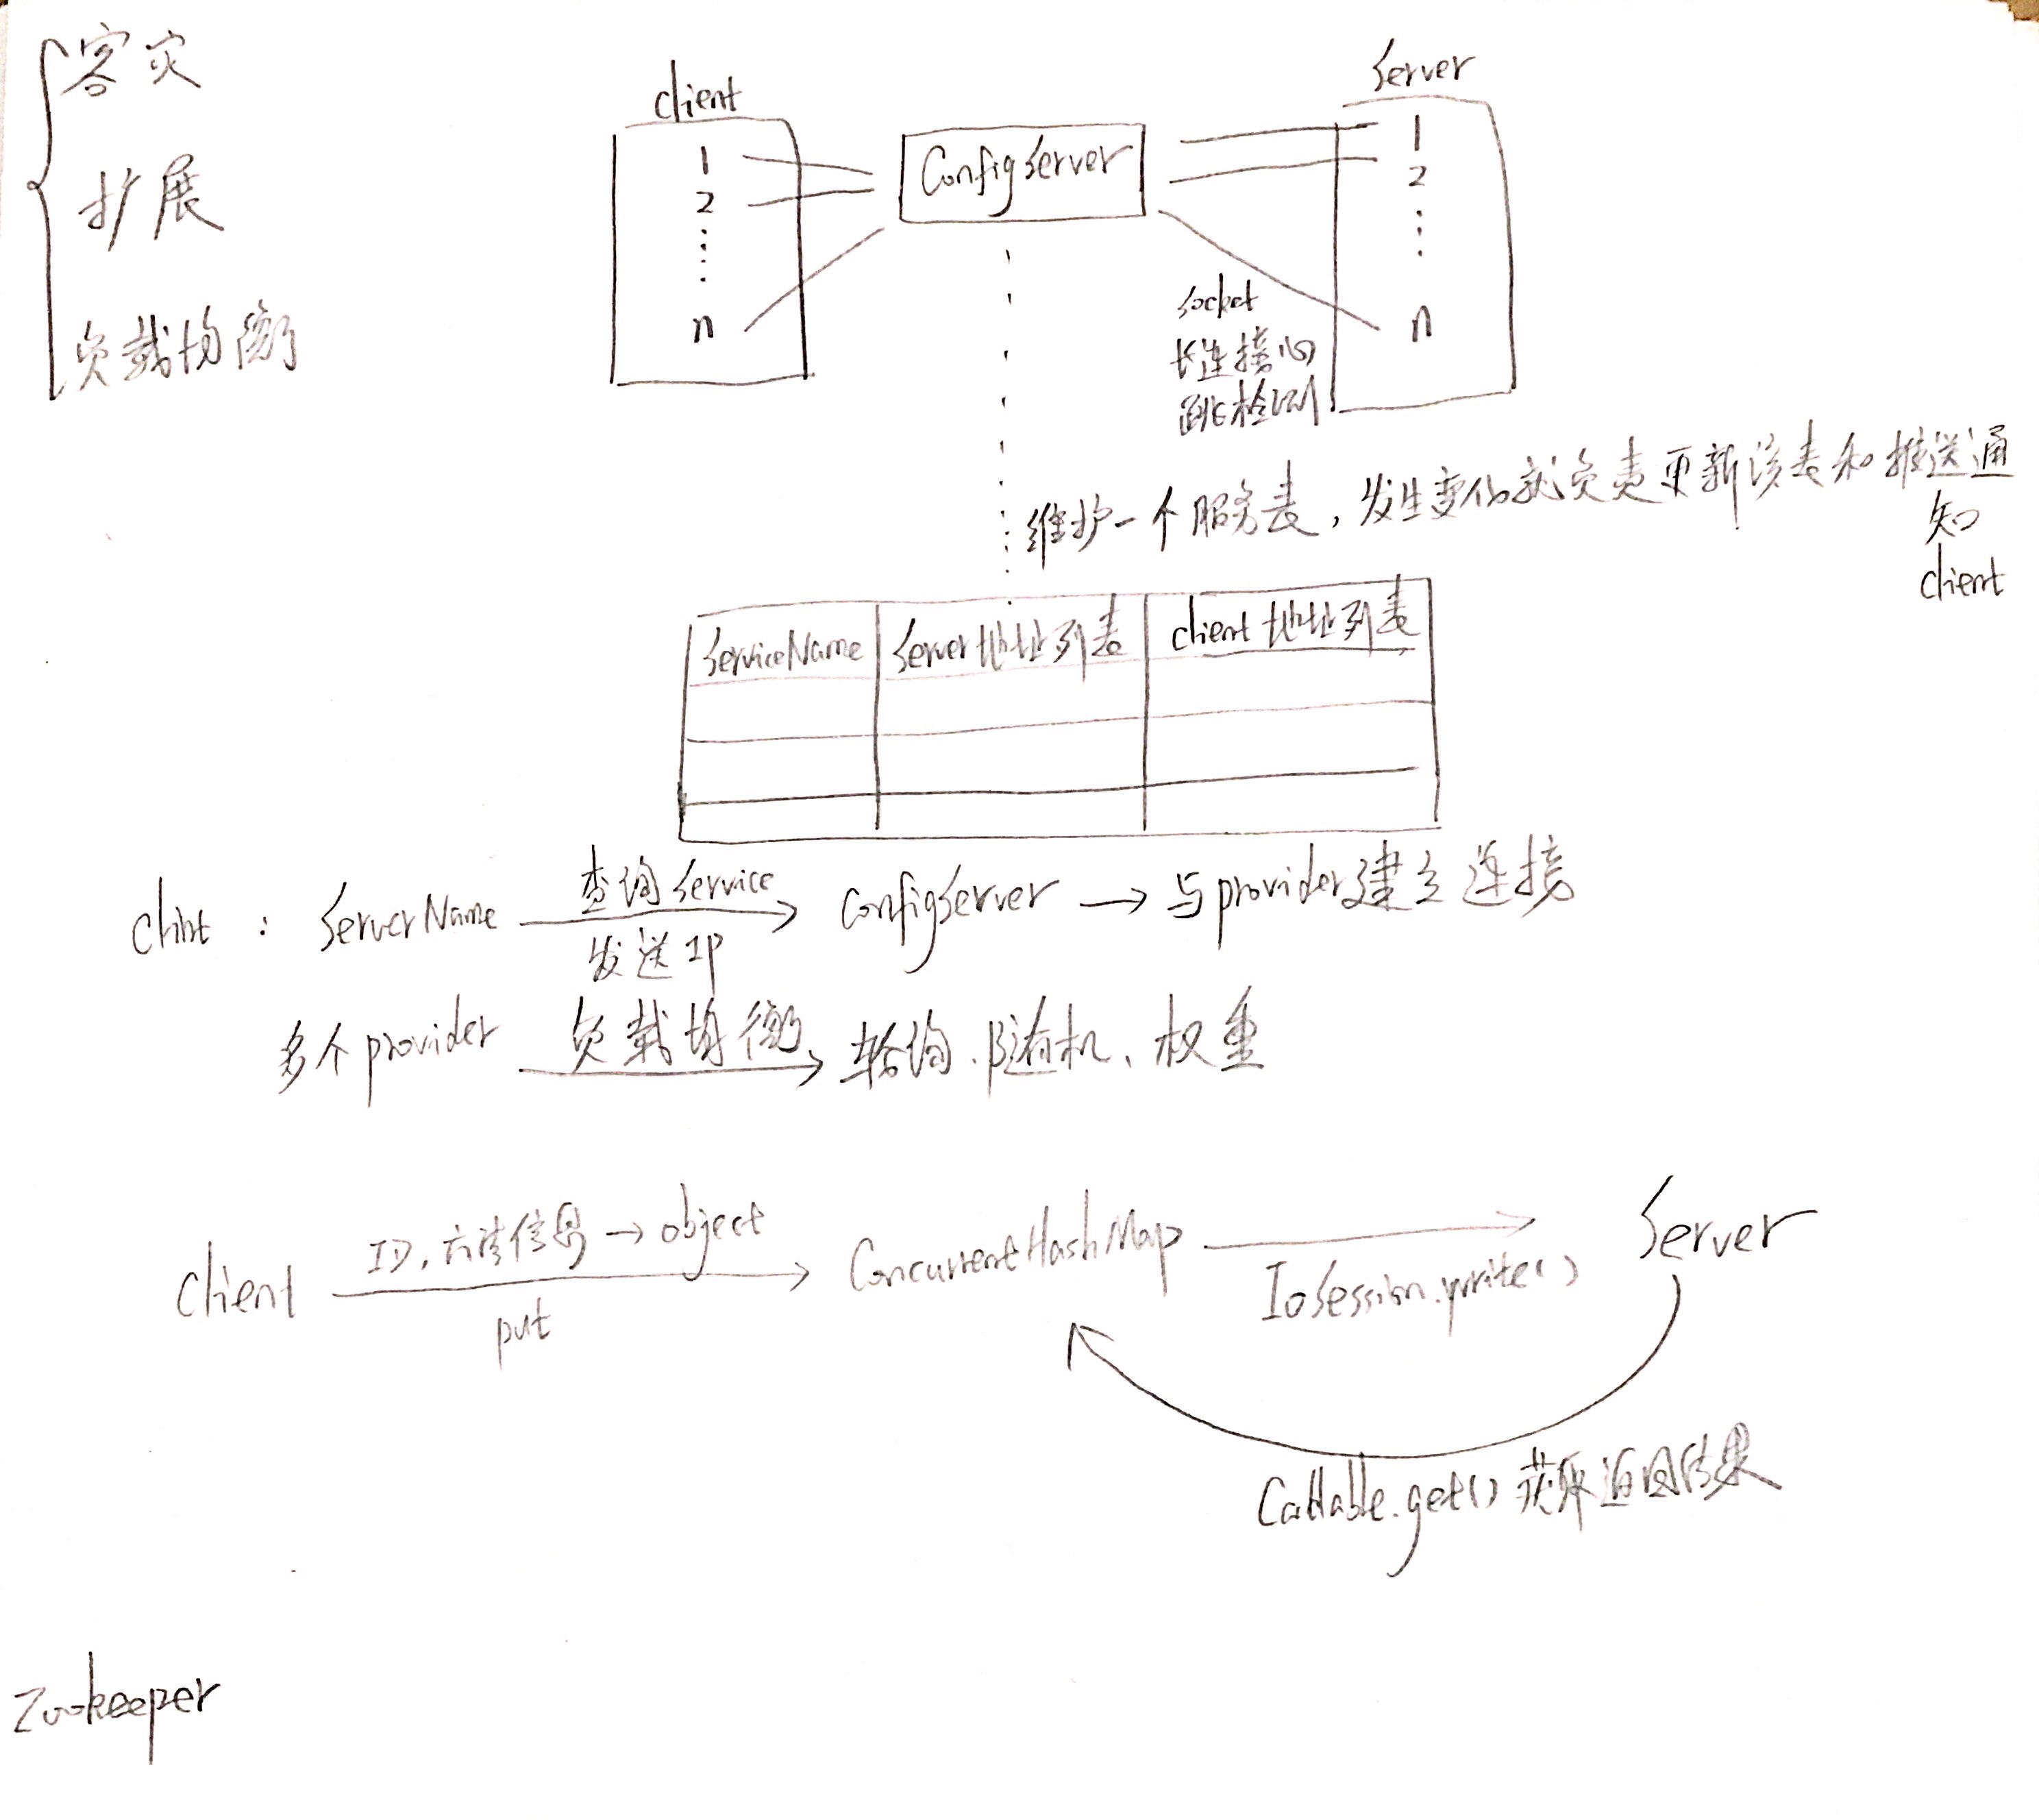 容灾
扩展
负载均衡
client
1
2
n
ConfigServer
Server
1
2
n
socket
长连接心
跳检测
维护一个服务表，发生变化就负责更新该表和推送通
知
client
ServiceName Server地址列表 client地址列表
clint : ServerName 查询Service 发送IP ConfigServer → 与provider建立连接
多个provider 负载均衡 轮询、随机、权重
Client ID，方法信息→object put ConcurrentHashMap IoSession.write() Server
Callable.get() 获取返回结果
Zookeeper